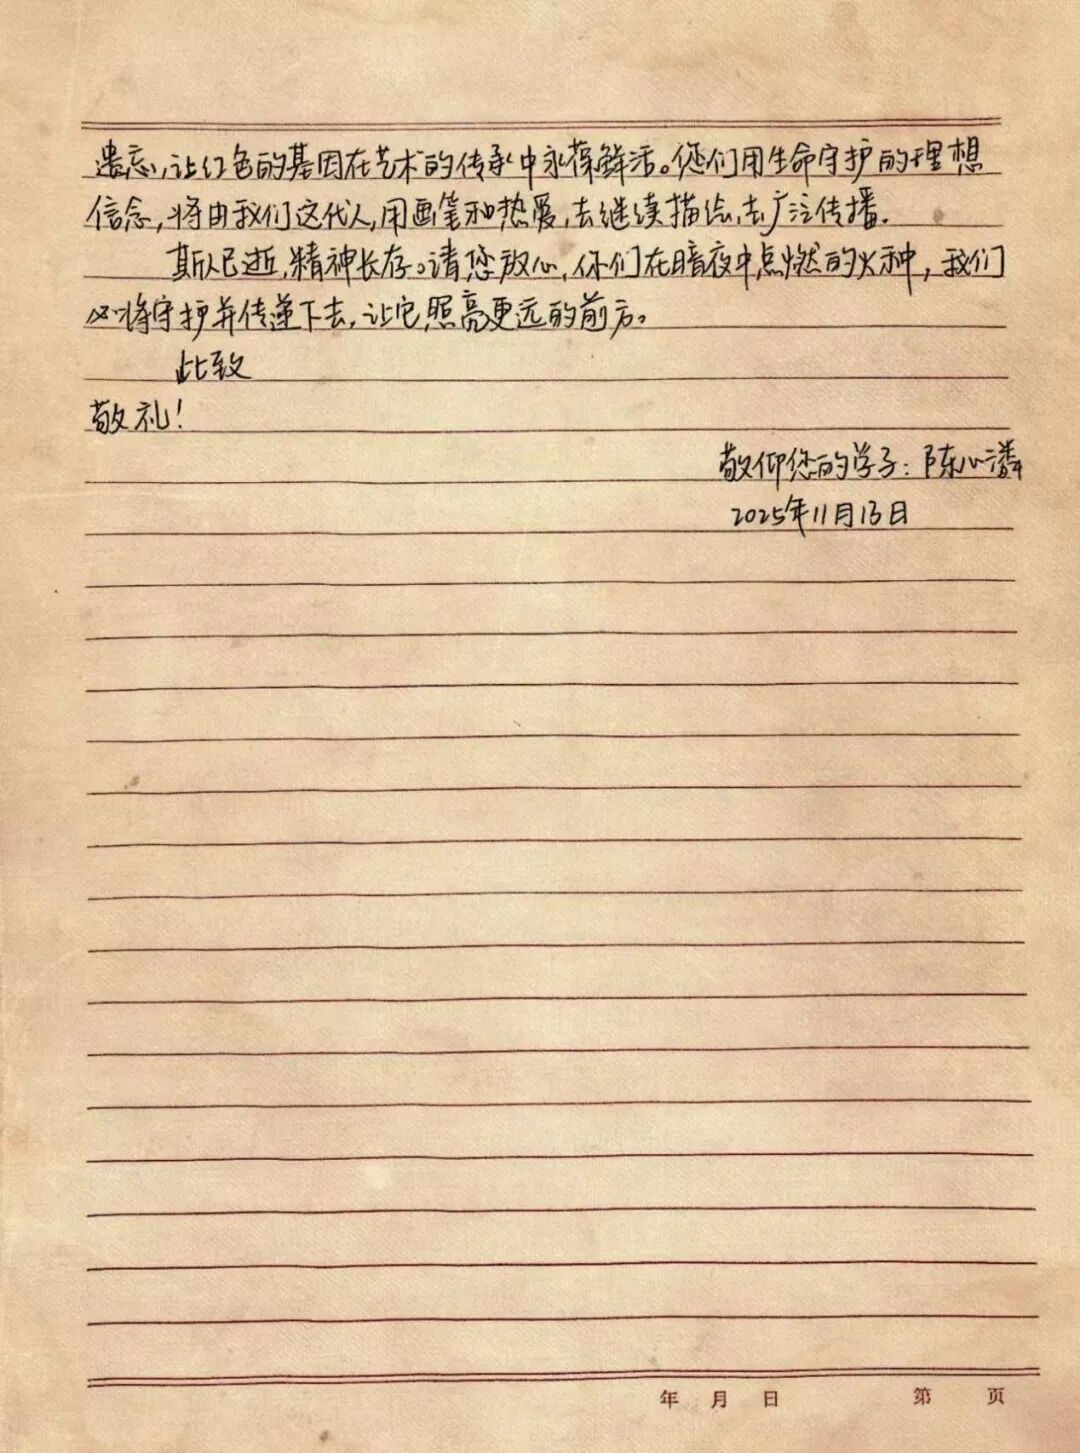 遗忘，让红色的基因在艺术的传承中永葆鲜活。您们用生命守护的理想
信念，将由我们这代人，用画笔和热爱，去继续描绘，去广泛传播．
斯人已逝，精神长存。请您放心，你们在暗夜中点燃的火种，我们
必将守护并传递下去，让它照亮更远的前方。
此致
敬礼！
敬仰您的学子：陈心潾
2025年11月13日
年 月 日 第 页